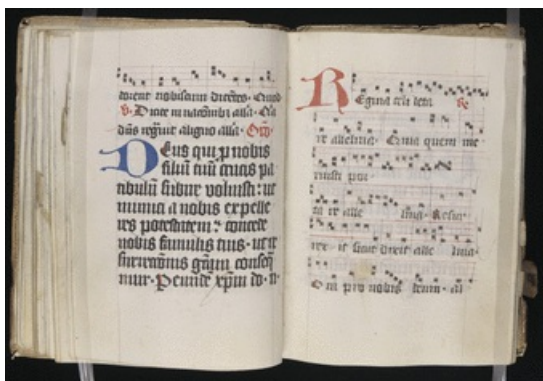 V. Dicite in nationibus alla. Q̄a
dn̄s regnavit a ligno alla. Orō
Deus qui p nobis
filiū tuū crucis pa
tibulū subire voluisti: ut
inimici a nobis expelle
res potestatem: concede
nobis famulis tuis. ut in
resurrectionis grām conseq̄
mur. Per eundē xp̄m do. n.
Regina celi leta R
re alleluia. Quia quem me
ruisti por
ta re alle luia. Resur
rex it sicut dixit alle luia.
Ora pro nobis deum. al